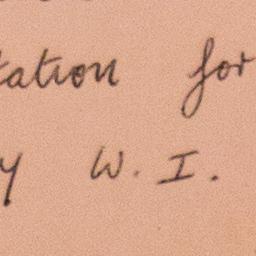 tation for
y W. I.